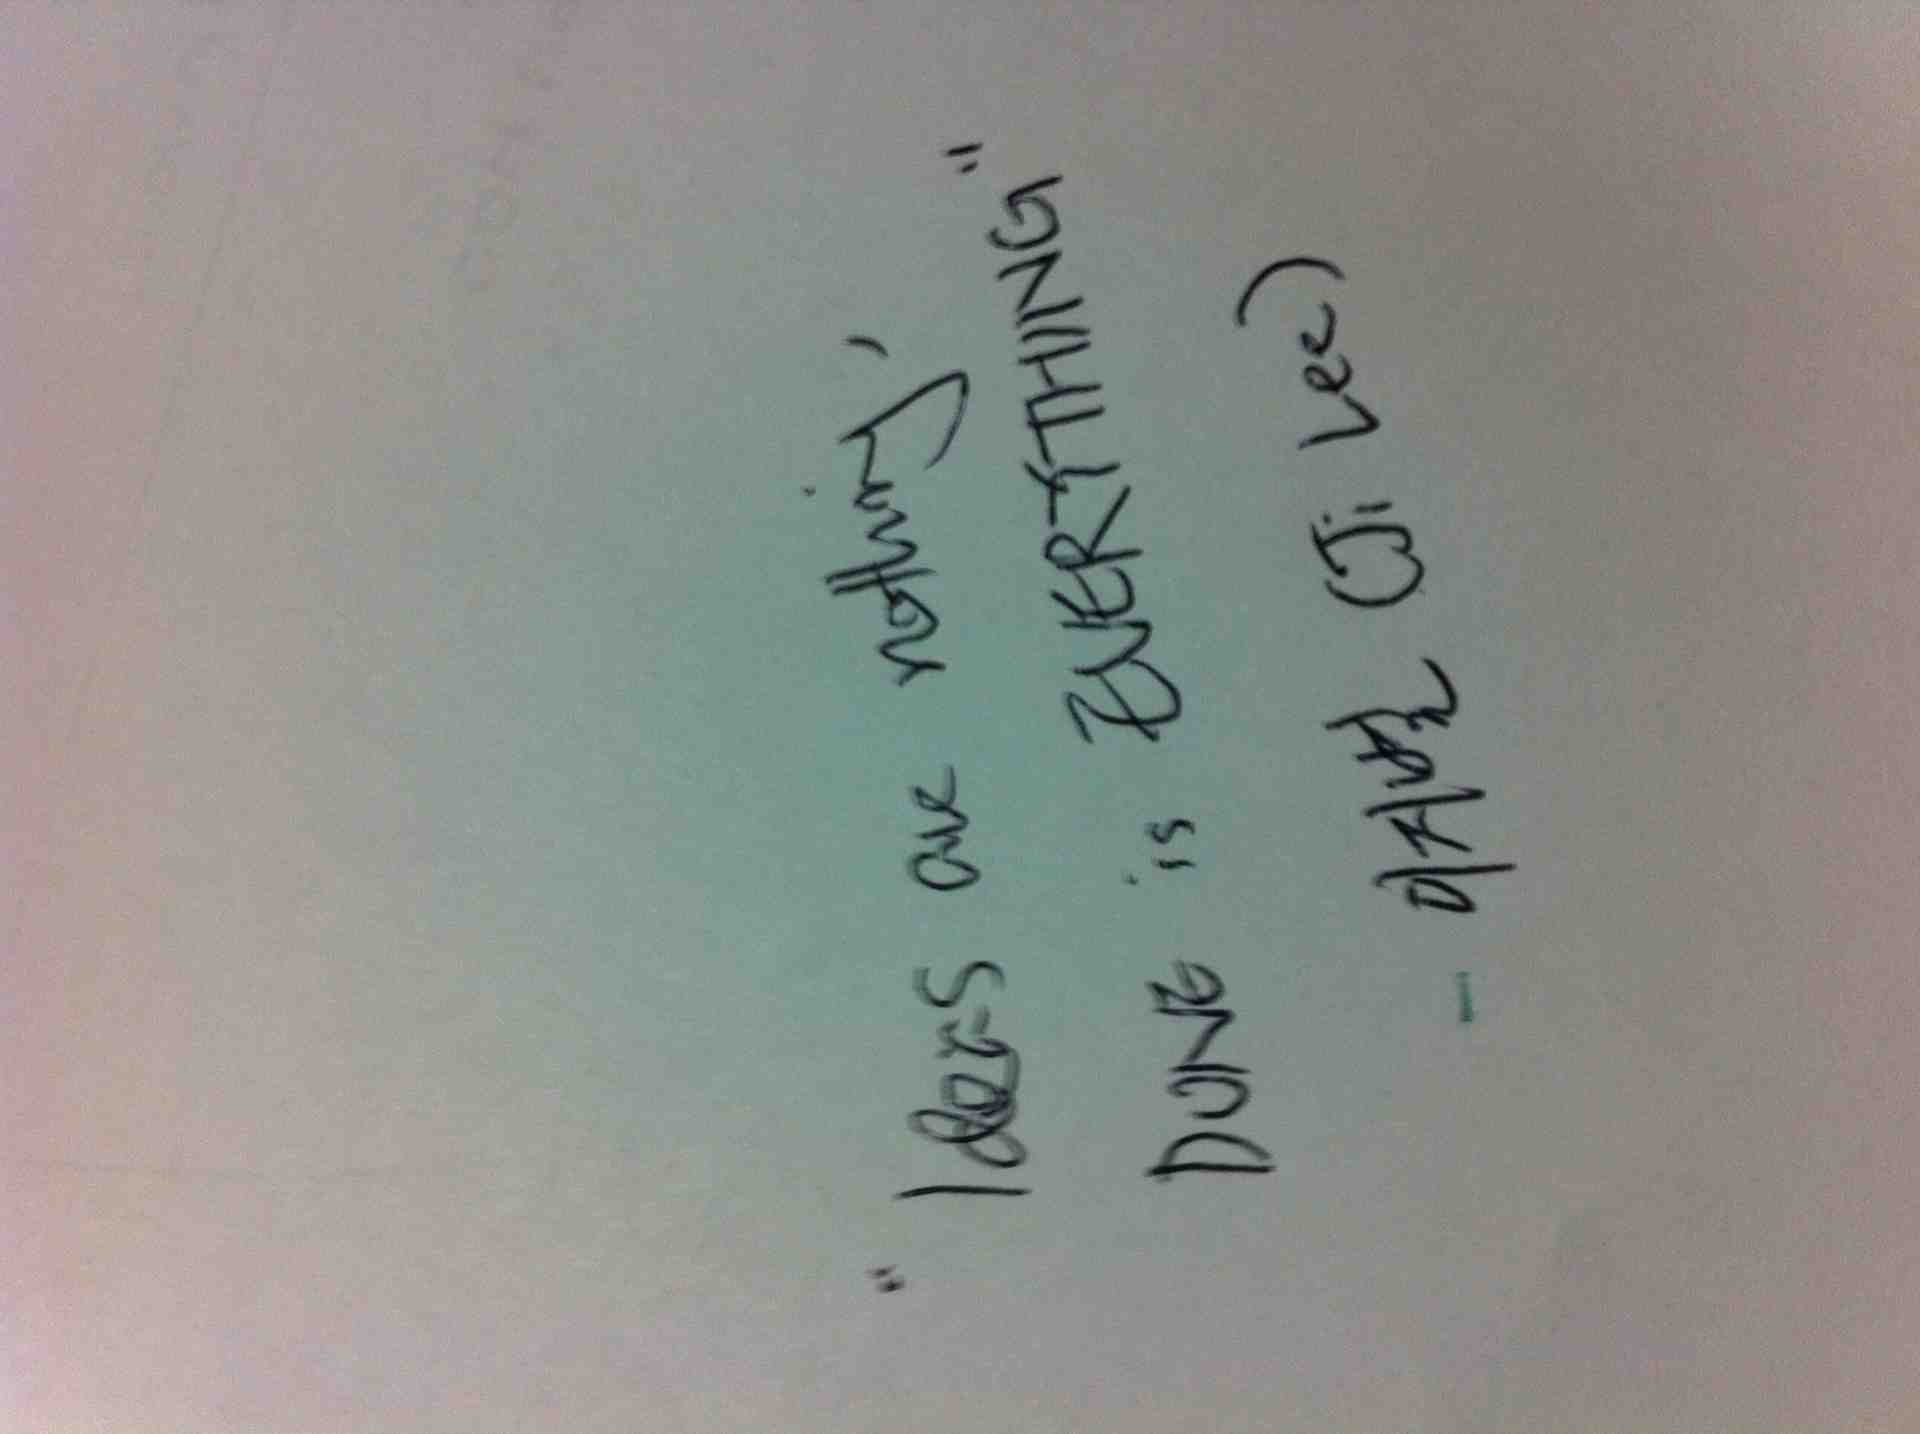 "Ideas are nothing,
DONE is EVERYTHING"
- 이지별 (Ji Lee)